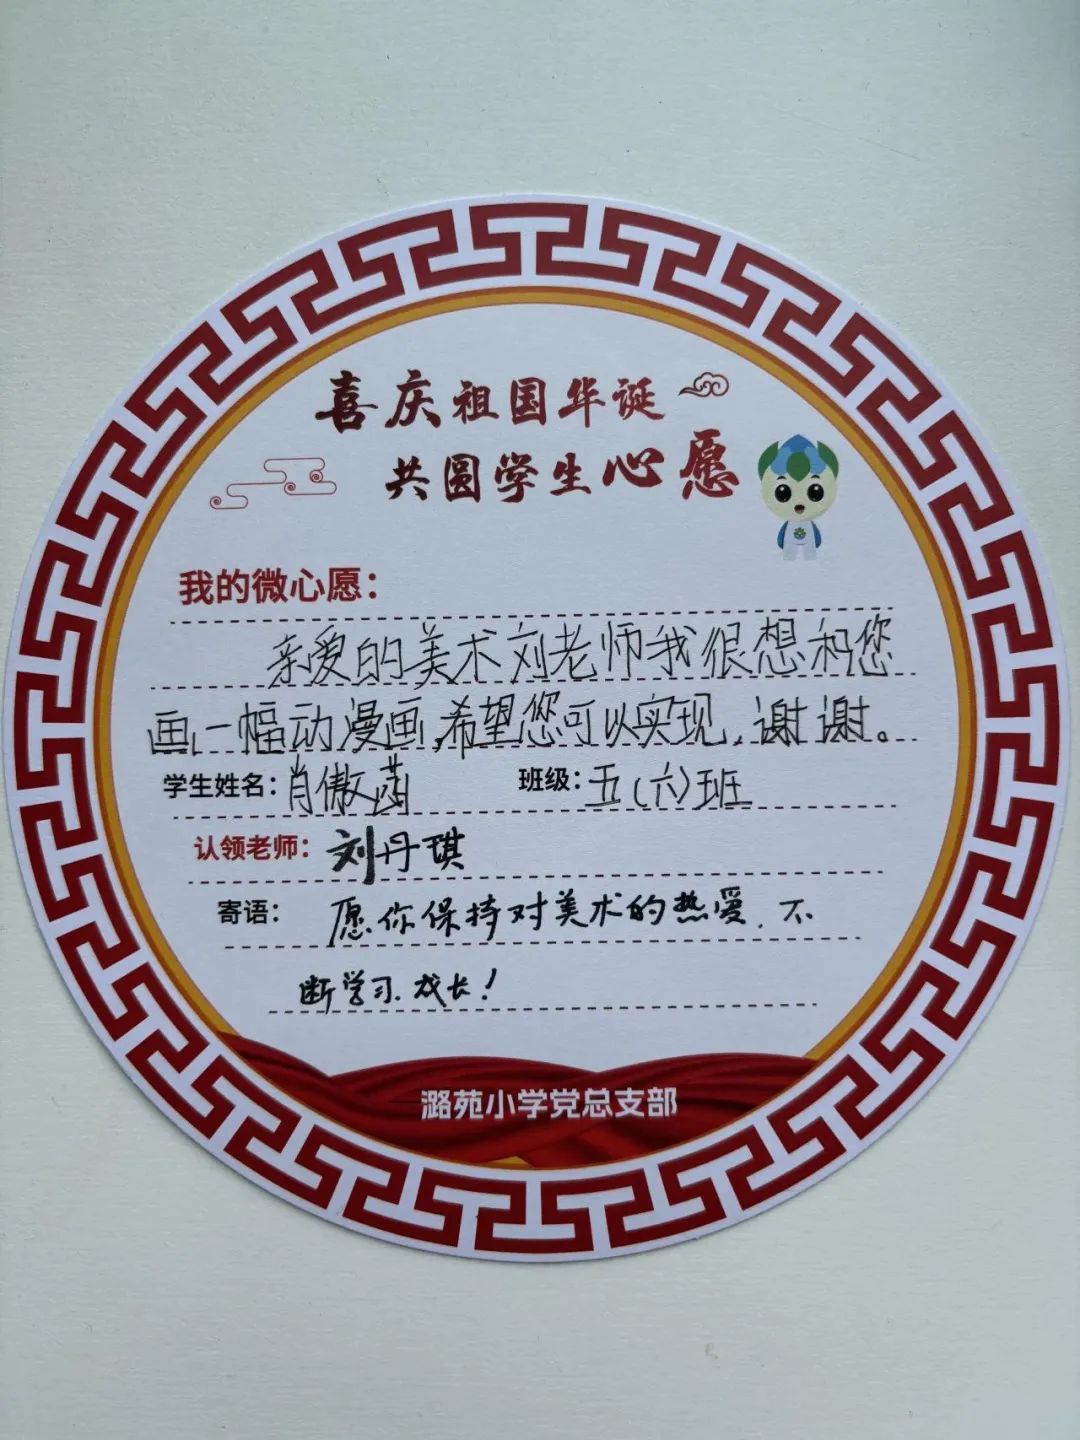 喜庆祖国华诞
共圆学生心愿
我的微心愿：
亲爱的美术刘老师我很想和您
画一幅动漫画,希望您可以实现,谢谢。
学生姓名：肖傲菡 班级：五(六)班
认领老师：刘丹琪
寄语：愿你保持对美术的热爱.不
断学习.成长!
潞苑小学党总支部